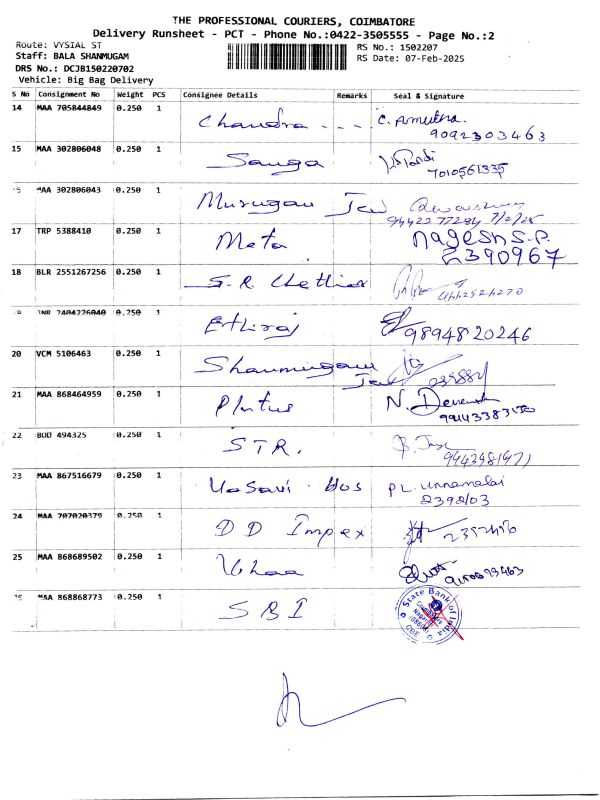 THE PROFESSIONAL COURIERS, COIMBATORE
Delivery Runsheet - PCT - Phone No.:0422-3505555 - Page No.:2
Route: VYSIAL ST
RS No.: 1502207
Staff: BALA SHANMUGAM
RS Date: 07-Feb-2025
DRS No.: DCJB150220702
Vehicle: Big Bag Delivery
S No Consignment No Weight PCS Consignee Details Remarks Seal & Signature
14 MAA 705844849 0.250 1 Chandra C. Amutha
9092303463
15 MAA 302806048 0.250 1 Sanga
7010561335
MAA 302806043 0.250 1 Murugan
7/2/25
17 TRP 5388410 0.250 1 Meta Nagesh S.P.
2390967
18 BLR 2551267256 0.250 1 S.R. Chettiar
JNR 2404226040 0.250 1 Ethiraj
9894820246
20 VCM 5106463 0.250 1 Shanmugam
21 MAA 868464959 0.250 1 Plutus N.
22 BOD 494325 0.250 1 STR.
23 MAA 867516679 0.250 1 Vasavi Hos PL. Unnamalai
2392103
24 MAA 707020379 0.250 1 DD Impex
25 MAA 868689502 0.250 1
MAA 868868773 0.250 1 SBI State Bank of India
CBE